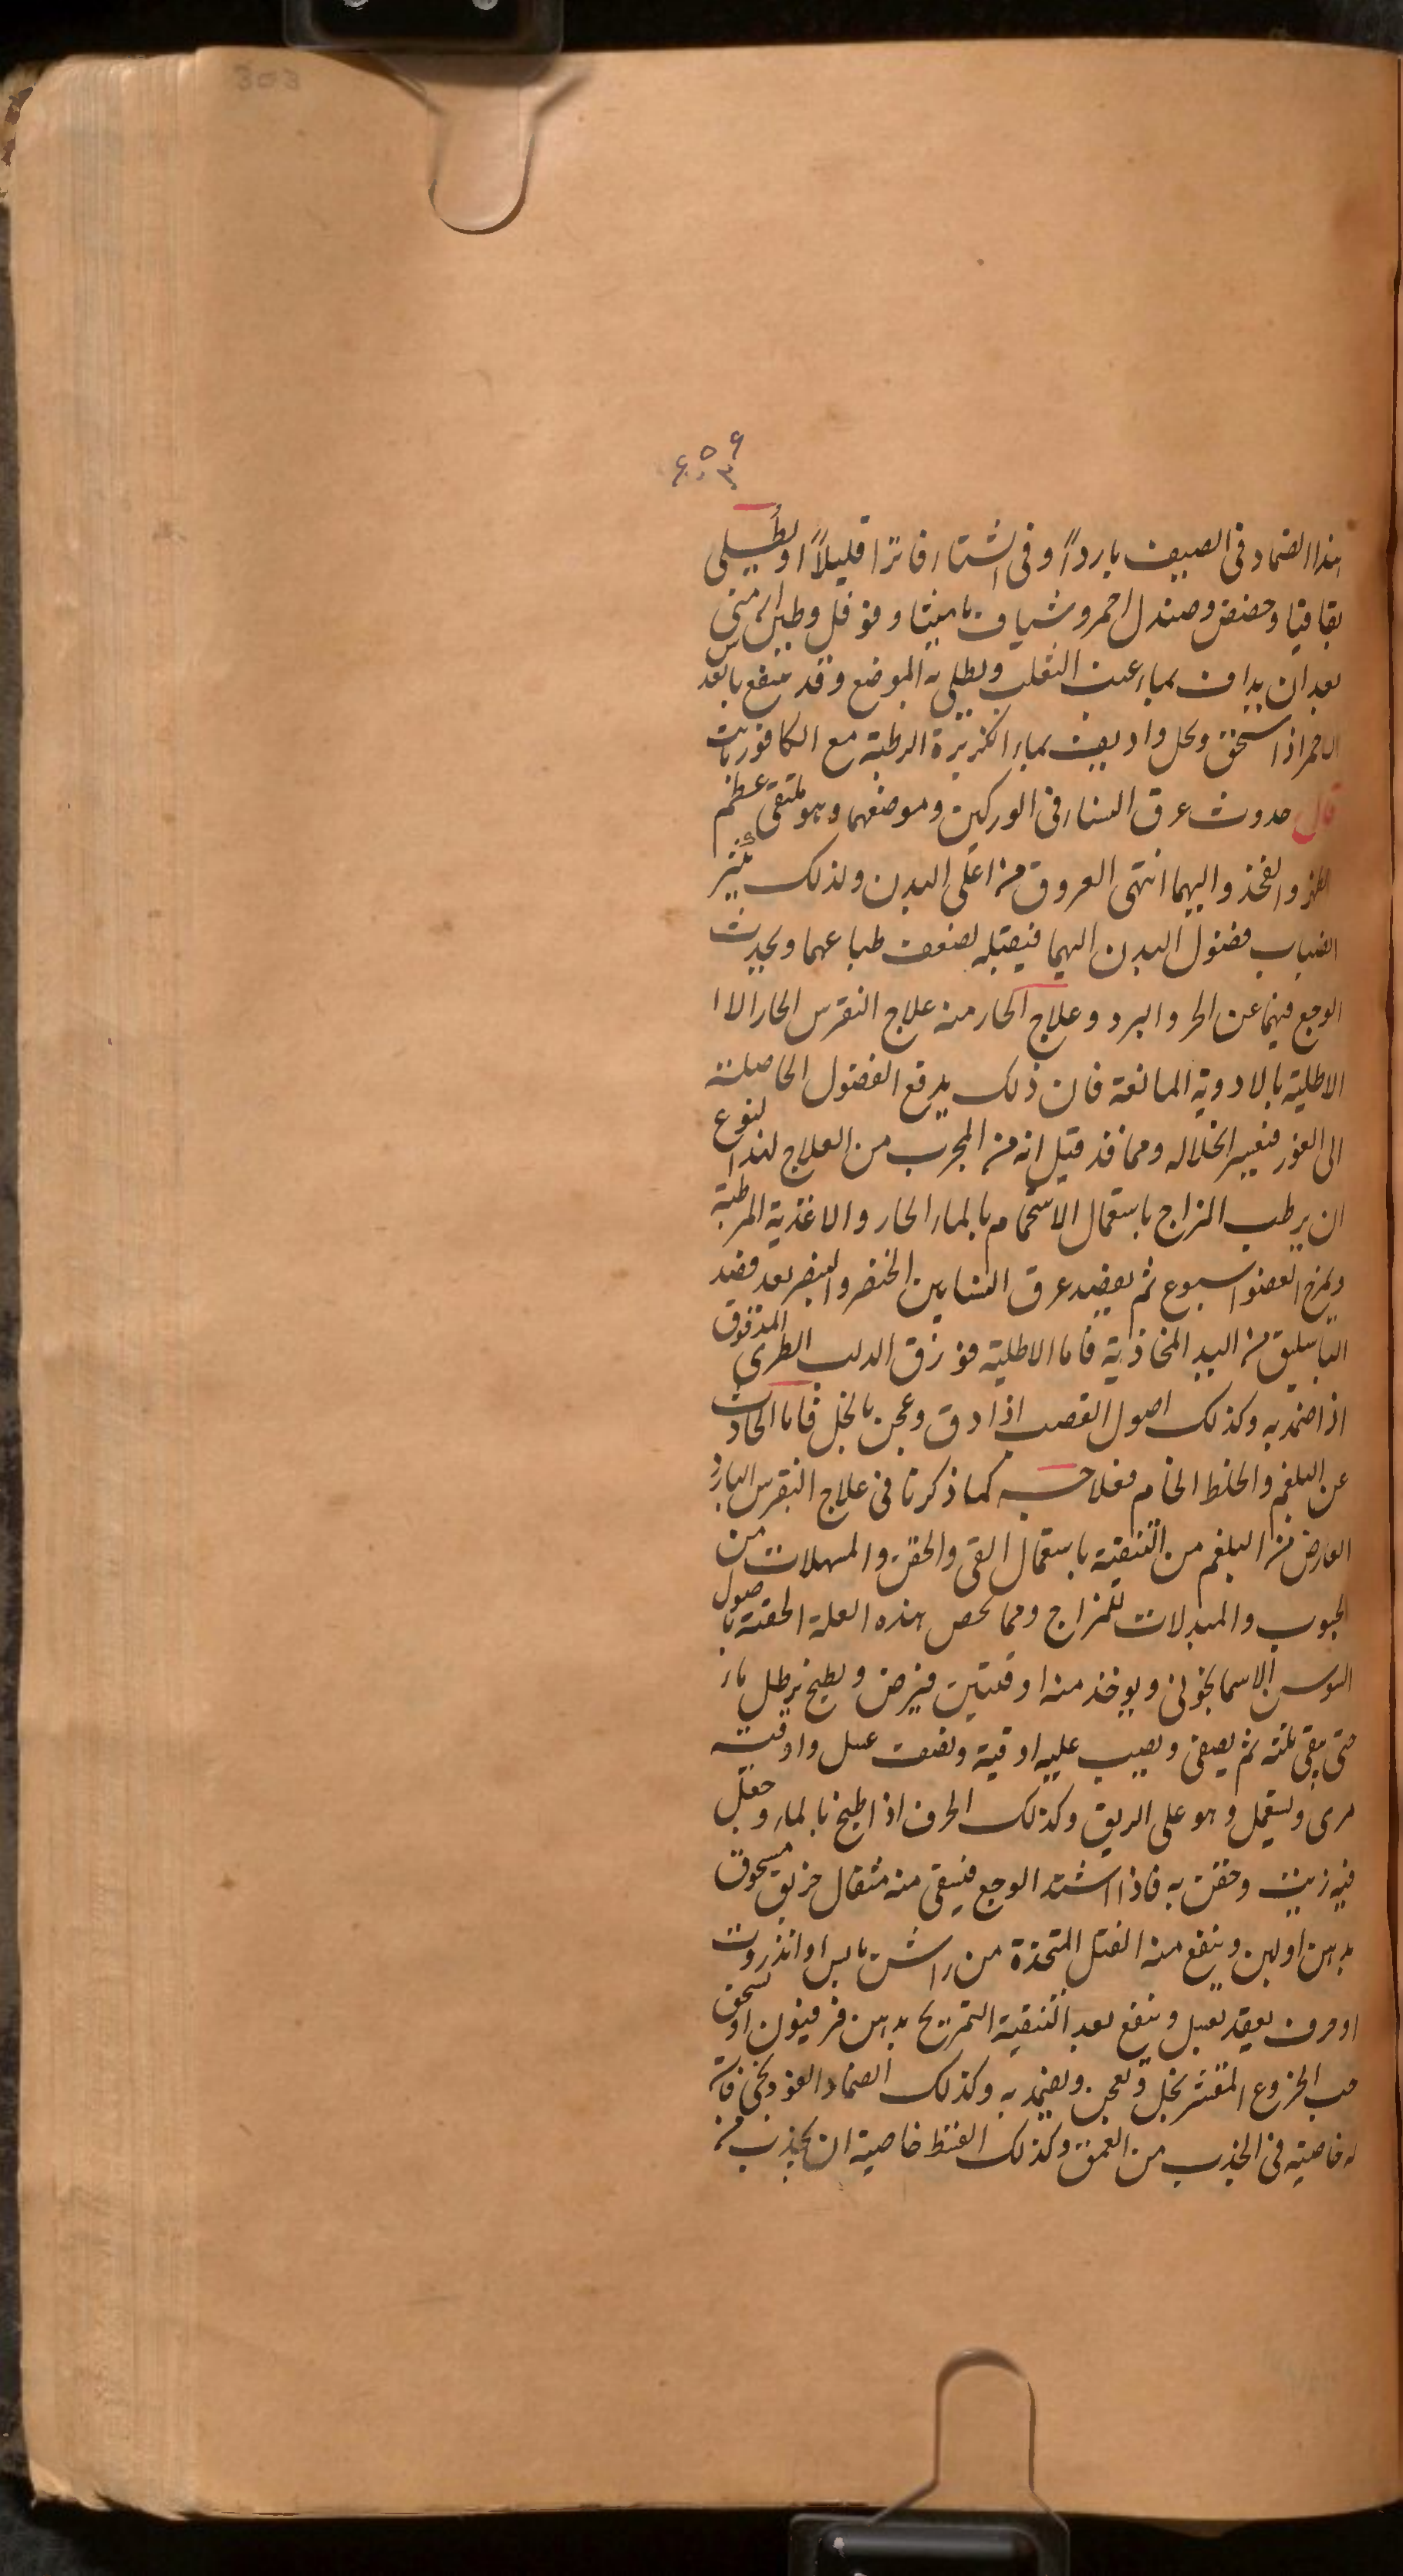 303
٦٥٩
هذا الضماد فى الصيف باردا وفى الشتاء فاترا قليلا او يطلى
بقاقيا وحضض وصندل احمر وشياف ماميثا وفوفل وطين ارمنى
بعد ان يداف بماء عنب الثعلب ويطلى به الموضع وقد ينفع بالعدس
الاحمر اذا سحق ونخل واديف بماء الكزبرة الرطبة مع الكافور بات
قال حدوث عرق النساء فى الوركين وموضعهما وهو ملتقى عظم
الظهر والفخذ واليهما انتهى العروق من اعلى البدن ولذلك يكثر
انصباب فضول البدن اليهما فيقبله لضعف طباعهما ويحدث
الوجع فيهما عن الحر والبرد وعلاج الحار منه علاج النقرس الحار الا
الاطلية بالادوية المانعة فان ذلك يدفع الفضول الحاصلة
الى الغور فيعسر انحلاله ومما قد قيل انه من المجرب من العلاج لهذا النوع
ان يرطب المزاج باستعمال الاستحمام بالماء الحار والاغذية المرطبة
ويمرخ العضو اسبوع ثم يفصد عرق النسا بين الخنصر والبنصر بعد فصد
الباسليق من اليد المحاذية فاما الاطلية فورق الدلب الطرى المدقوق
اذا ضمد به وكذلك اصول القصب اذا دق وعجن بالخل فاما الحادث
عن البلغم والخلط الخام فعلاجه كما ذكرنا فى علاج النقرس البارد
العارض من البلغم من التنقية باستعمال القى والحقن والمسهلات من
الحبوب والمبدلات للمزاج ومما يخص هذه العلة الحقنة باصول
السوسن الاسمانجونى ويوخذ منه اوقيتين فيرض ويطبخ برطل ماء
حتى يبقى ثلثه ثم يصفى ويصب عليه اوقية ونصف عسل واوقية
مرى ويستعمل وهو على الريق وكذلك الحرف اذا طبخ بالماء وجعل
فيه زيت وحقن به فاذا اشتد الوجع فيسقى منه مثقال خربق مسحوق
بدهن او لبن وينفع منه الفتل المتخذة من اشق يابس او انزروت
او حرف يعقد بعسل وينفع بعد التنقية التمريخ بدهن فرفيون او يسحق
حب الخروع المقشر بخل ويعجن ويضمد به وكذلك الضماد الفودنجى فانه
له خاصية فى الجذب من العمق وكذلك النفط خاصية ان يجذب من